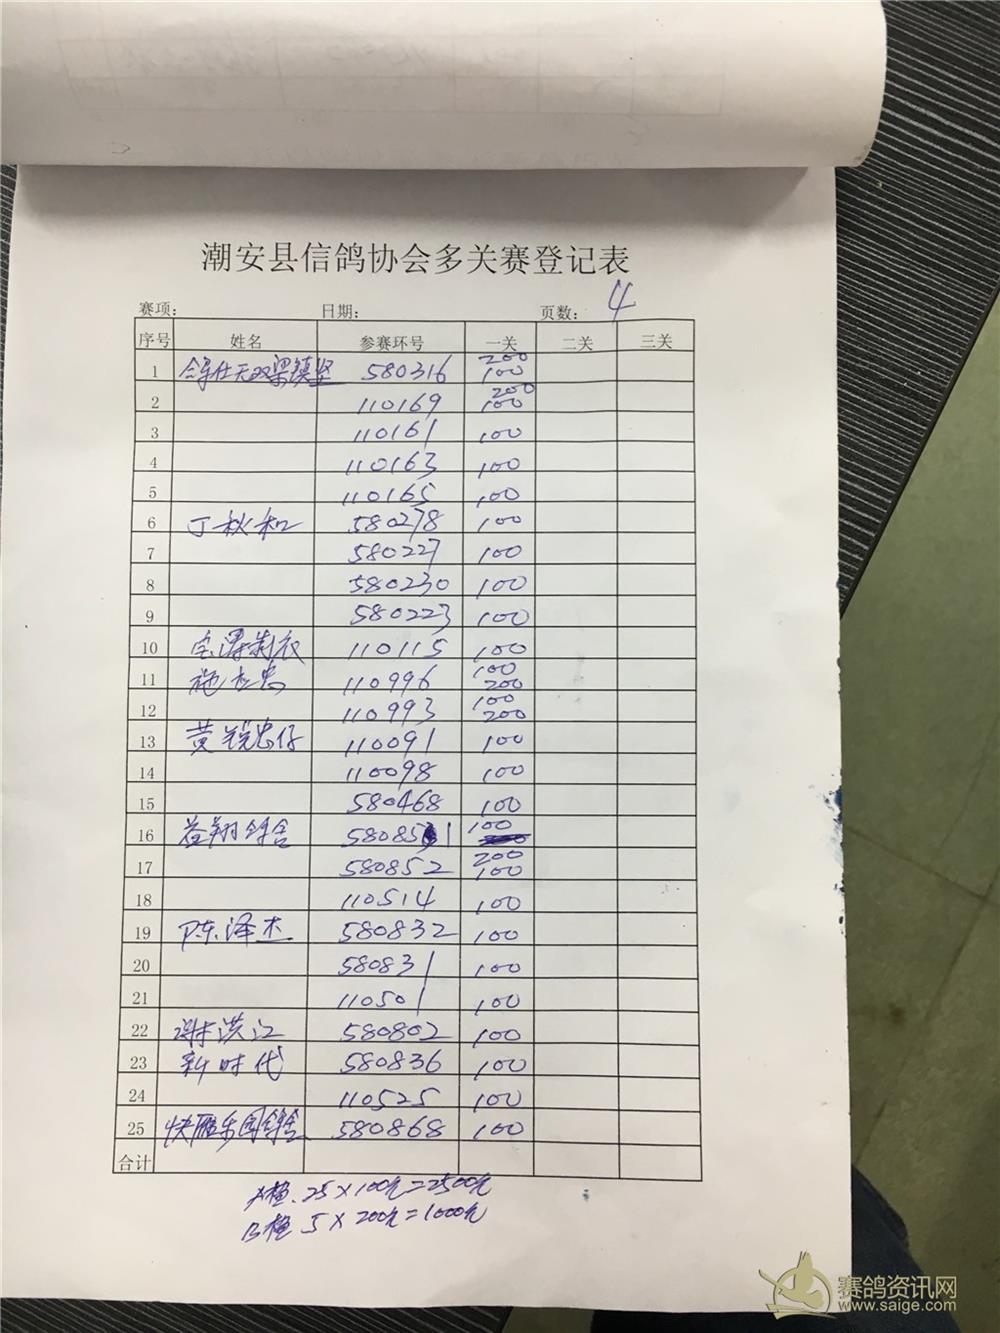 潮安县信鸽协会多关赛登记表
赛项: 日期: 页数: 4
序号 姓名 参赛环号 一关 二关 三关
200
1 梁镇坚 580316 100
200
2 110169 100
3 110161 100
4 110163 100
5 110165 100
6 丁秋和 580278 100
7 580227 100
8 580230 100
9 580223 100
10 制衣 110115 100
100
11 施 110996 200
100
12 110993 200
13 黄锐忠仔 110091 100
14 110098 100
15 580468 100
16 益翔鸽舍 580851 100
200
17 580852 100
18 110514 100
19 陈泽杰 580832 100
20 580831 100
21 110501 100
22 谢洪江 580802 100
23 新时代 580836 100
24 110525 100
25 乐园鸽舍 580868 100
合计
A植.25×100元=2500元
B植 5×200元=1000元
赛鸽资讯网
www.saige.com